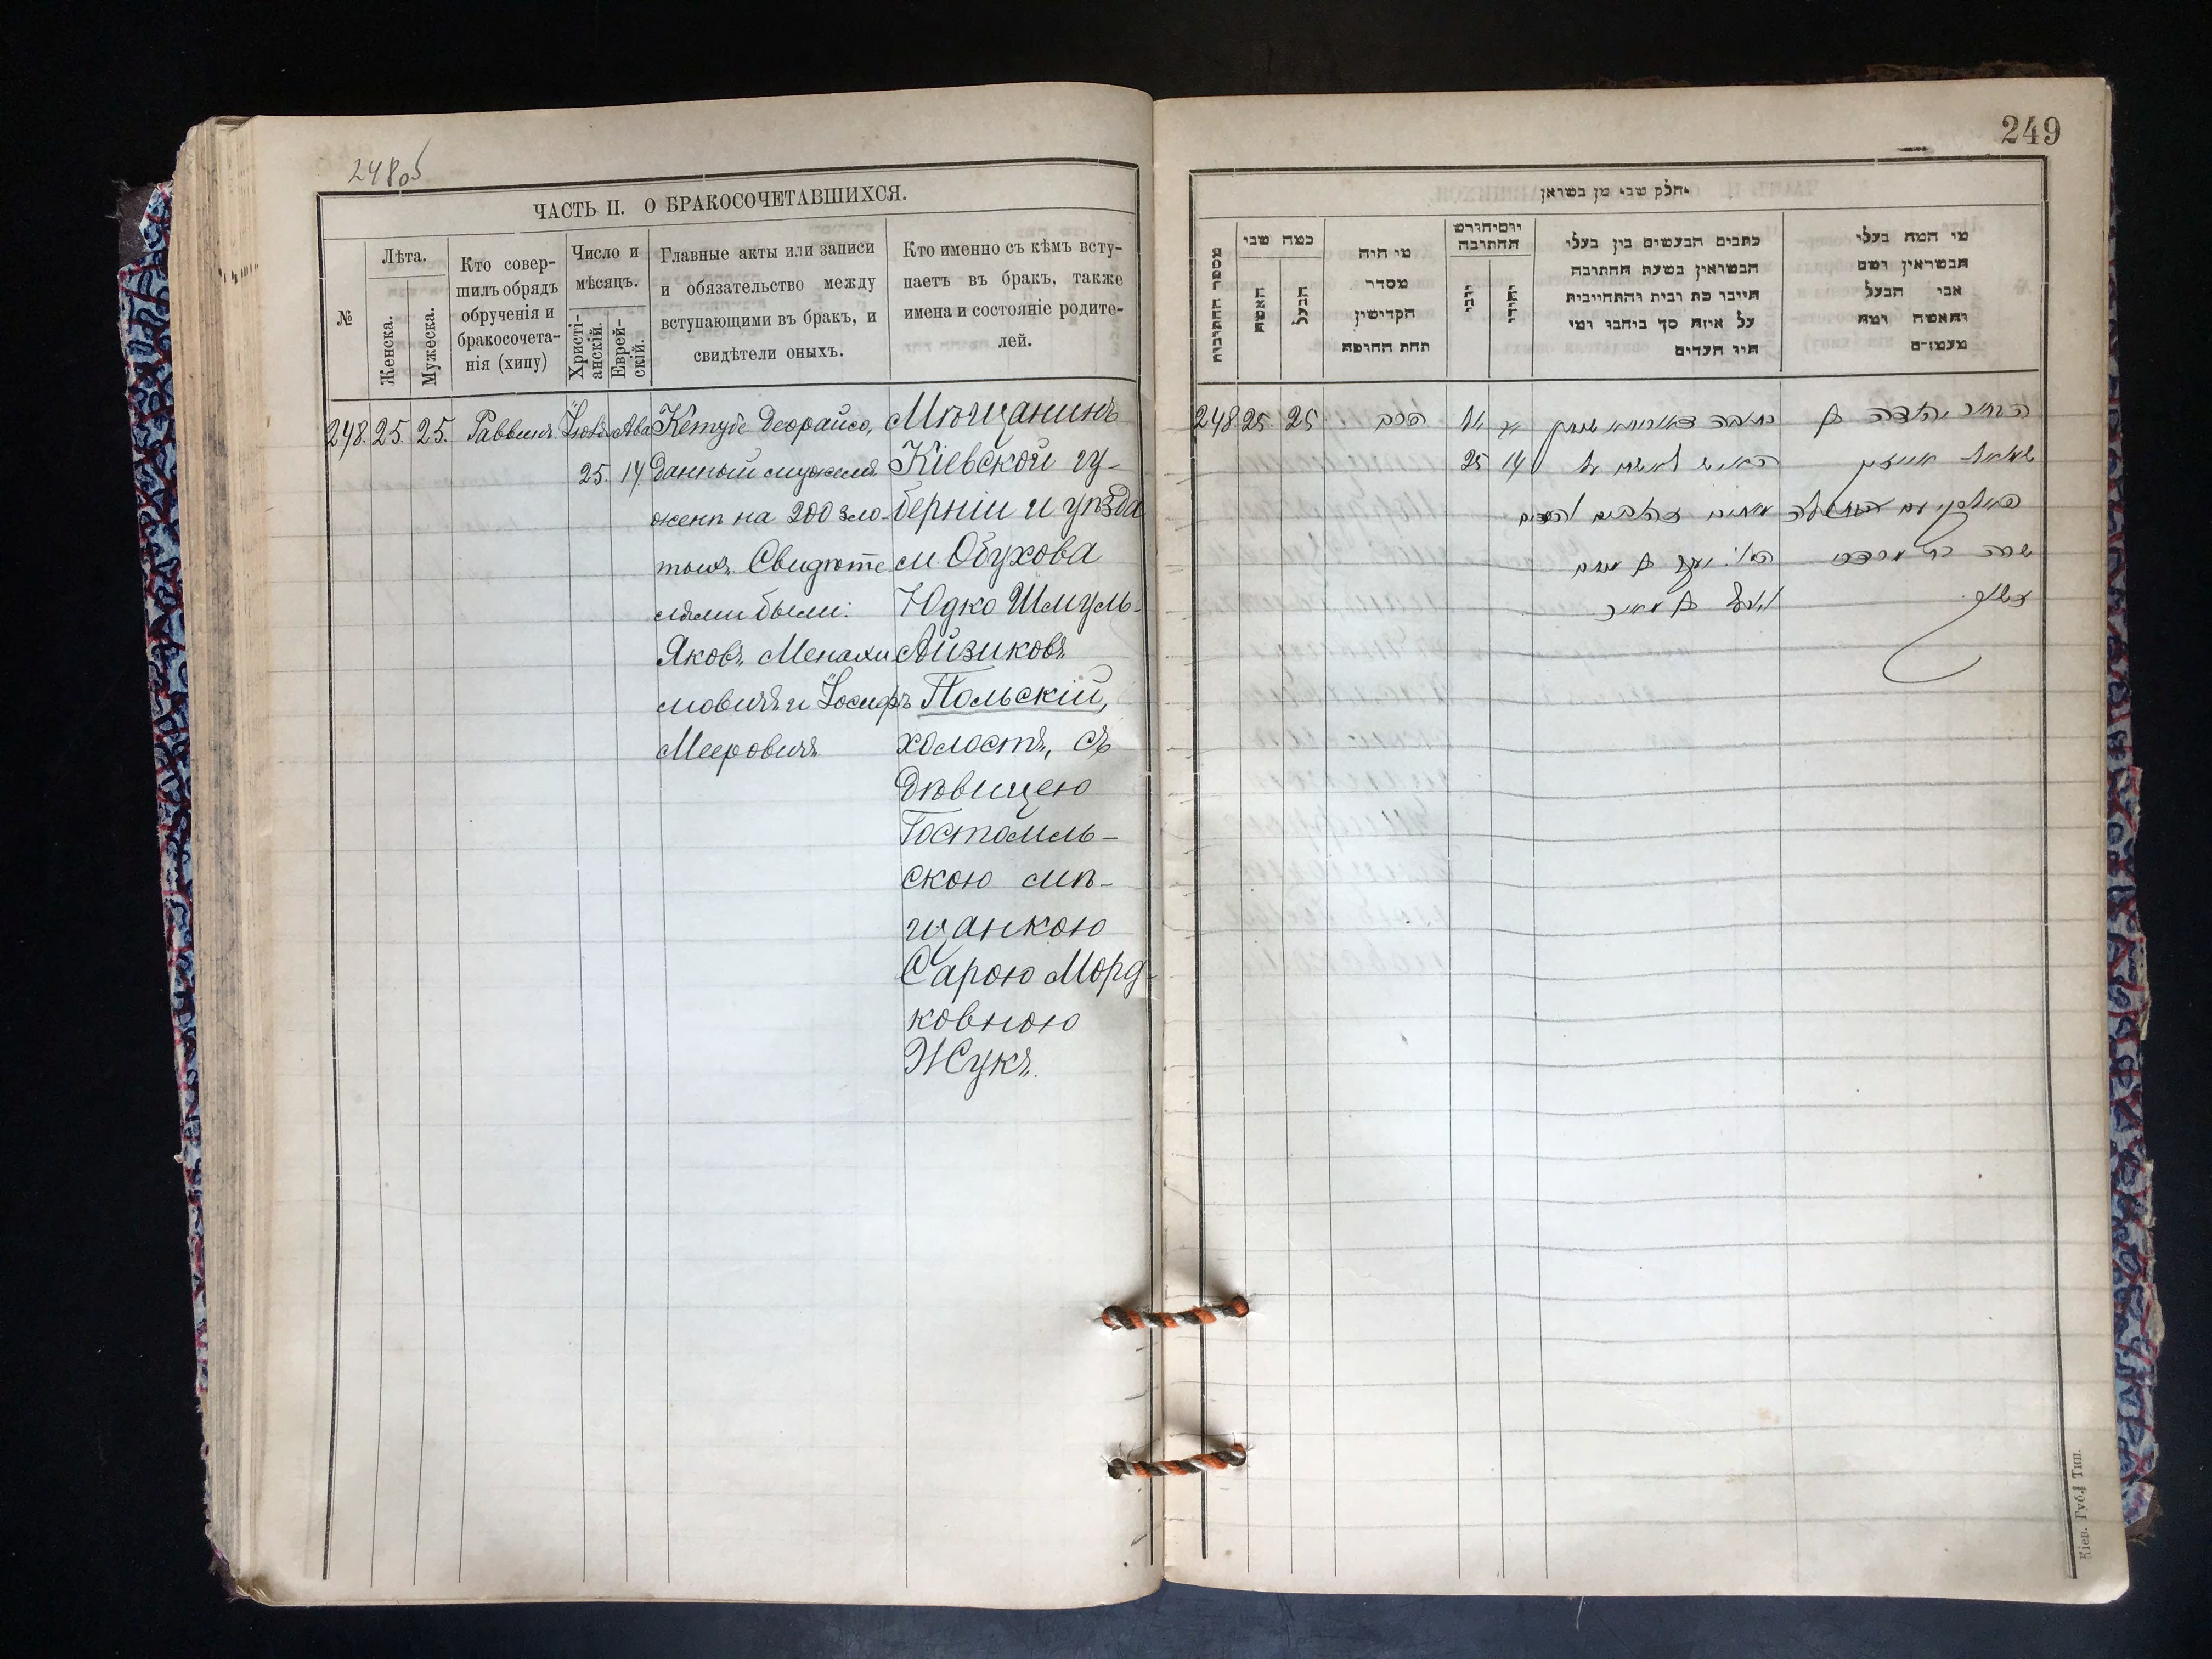 248об
ЧАСТЬ II. О БРАКОСОЧЕТАВШИХСЯ.
№
Лѣта.
Женска.
Мужеска.
Кто совер-
шилъ обрядъ
обрученія и
бракосочета-
нія (хипу)
Число и
мѣсяцъ.
Христі-
анскій.
Еврей-
скій.
Главные акты или записи
и обязательство между
вступающими въ бракъ, и
свидѣтели оныхъ.
Кто именно съ кѣмъ всту-
паетъ въ бракъ, также
имена и состояніе родите-
лей.
248. 25. 25. Раввинъ. Іюля Ава
25. 14
Кетубе Деорайсо,
данный мужемъ
жене на 200 зло-
тыхъ. Свидѣте
лями были:
Яковъ Менахи
мовичъ и Іосифъ
Мееровичъ
Мѣщанинъ
Кіевской гу-
берніи и уѣзда
м. Обухова
Юдко Шмуль-
Айзиковъ
Польскій,
холостъ, съ
дѣвицею
Гостомль-
скою мѣ-
щанкою
Сарою Морд-
ковною
Жукъ.
249
מספר החתונות
כמה שני
האשה
הבעל
מי היה
מסדר
הקדישין
תחת החופה
כתבים הנעשים בין בעלי
הנשואין בשעת החתונה
על איזה סך ניתנו ומי
היו העדים
מי המה בעלי
הנשואין ושם
אבי הבעל
והאשה ומה
248 25 25 הרב
25 14
שרה בת מרדכי
Кіев. Губ. Тип.